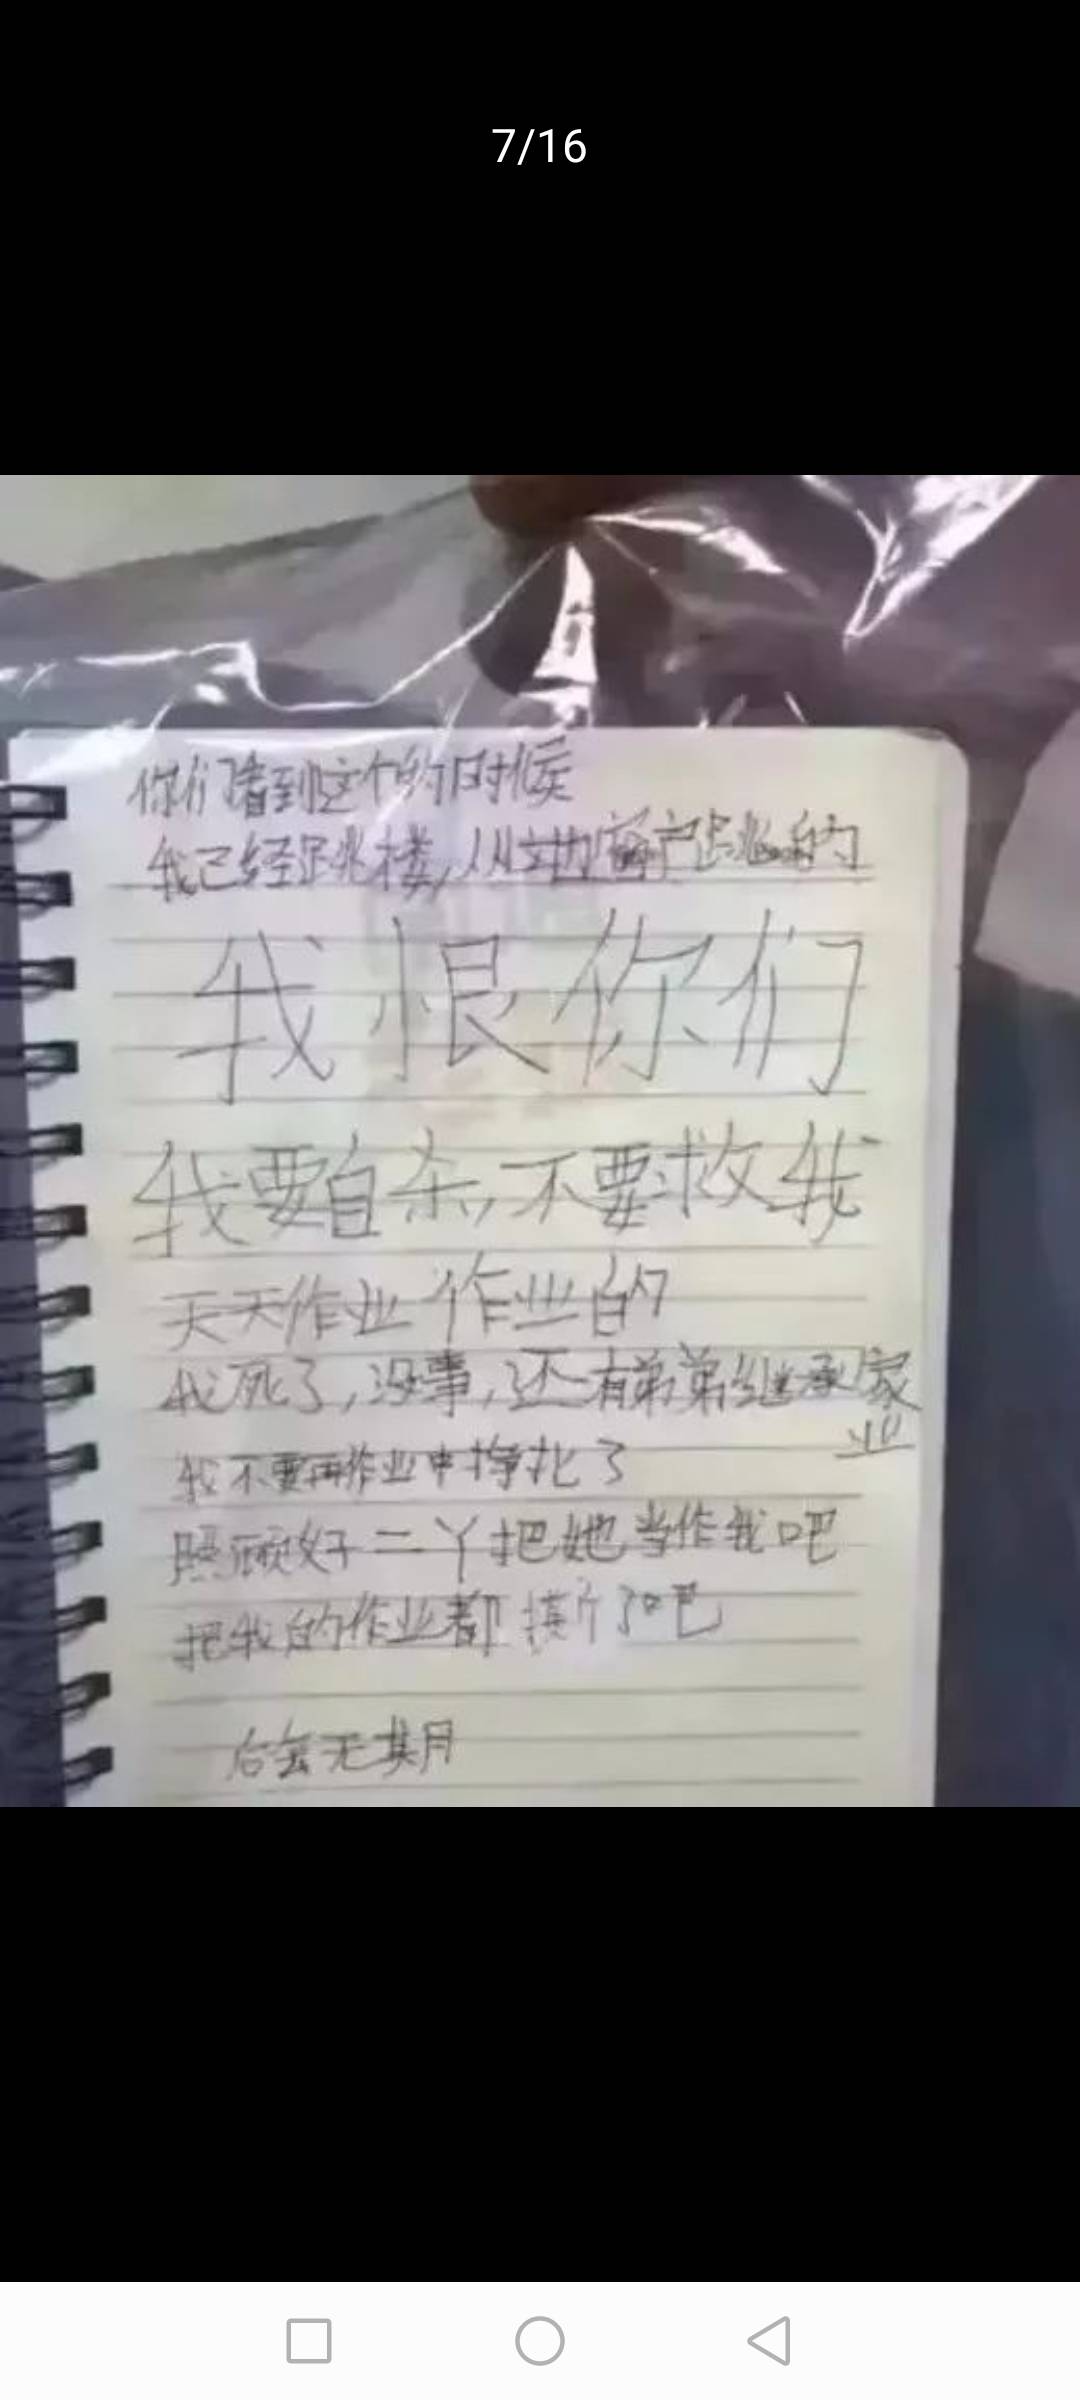 7/16
你们看到这个的时候
我已经跳楼,从这边窗户跳的
我恨你们
我要自杀,不要救我
天天作业作业的
我死了,没事,还有弟弟继承家
业
我不要再作业中挣扎了
照顾好二丫把她当作我吧
把我的作业都撕了吧
后会无期